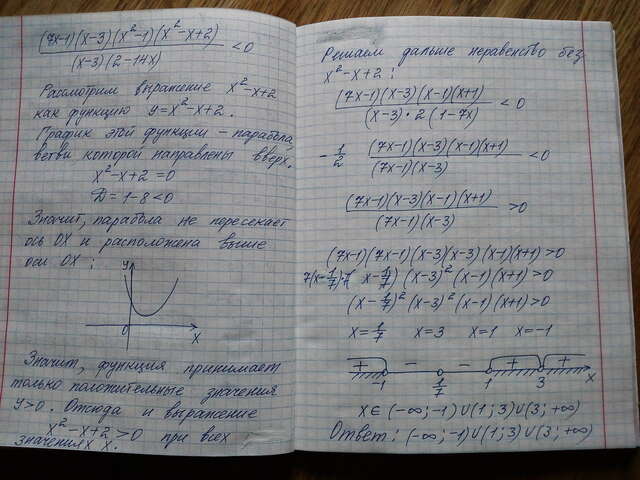 (7x-1)(x-3)(x²-1)(x²-x+2)
(x-3)(2-14x) <0
Рассмотрим выражение x²-x+2
как функцию y=x²-x+2.
График этой функции - парабола,
ветви которой направлены вверх.
x²-x+2=0
D=1-8<0
Значит, парабола не пересекает
ось OX и расположена выше
оси OX:
y
0 x
Значит, функция принимает
только положительные значения
y>0. Отсюда и выражение
x²-x+2>0 при всех
значениях x.
Решаем дальше неравенство без
x²-x+2:
(7x-1)(x-3)(x-1)(x+1)
(x-3)·2(1-7x) <0
-1/2 (7x-1)(x-3)(x-1)(x+1)
(7x-1)(x-3) <0
(7x-1)(x-3)(x-1)(x+1)
(7x-1)(x-3) >0
(7x-1)(7x-1)(x-3)(x-3)(x-1)(x+1)>0
7(x-1/7)·7(x-1/7)(x-3)²(x-1)(x+1)>0
(x-1/7)²(x-3)²(x-1)(x+1)>0
x=1/7 x=3 x=1 x=-1
+ - - + +
-1 1/7 1 3 x
x∈(-∞;-1)∪(1;3)∪(3;+∞)
Ответ: (-∞;-1)∪(1;3)∪(3;+∞)